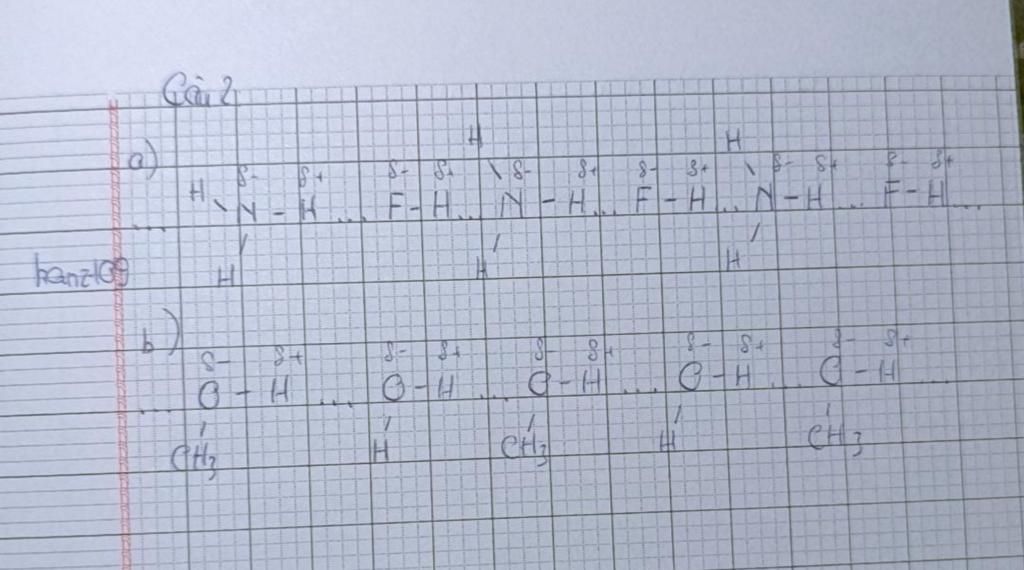 Câu 2
a)
H H
δ- δ+ δ- δ+ δ- δ+ δ- δ+ δ- δ+ δ- δ+
... H N - H ... F - H ... N - H ... F - H ... N - H ... F - H ...
H H H
hanz109
b)
δ- δ+ δ- δ+ δ- δ+ δ- δ+ δ- δ+
... O - H ... O - H ... O - H ... O - H ... O - H ...
CH3 H CH3 H CH3